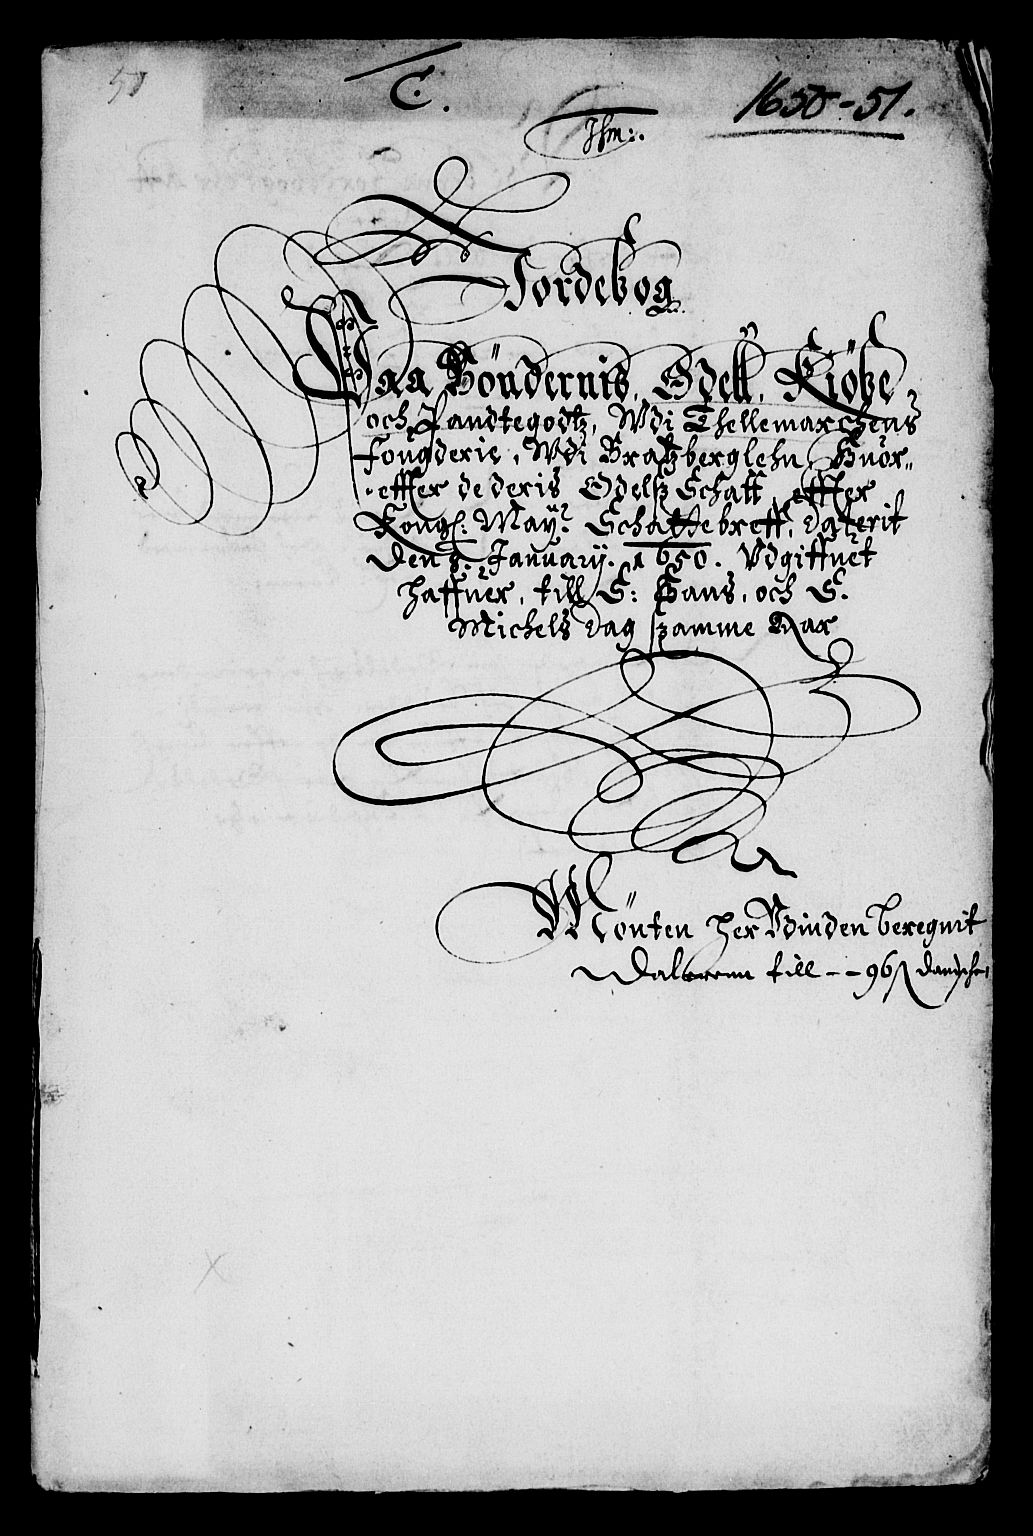 50
C.
1650-51.
Jhm:.
Jordebog
Paa Böndernis, Odell, Kiöbe,
och Pandtegodtz, Wdi Thellemarchens
fougderie, Wdi Bratzberglehn, Huor-
effter de deris Odelsz Schatt, effter
Kongl: May: Schattebreff, daterit
Den 3. Januarij. 1650. Vdgiffuet
haffuer, till S: Hans, och S.
Michels Dag szamme Aar
Mönten her Vdinden beregnit
Dalerenn till -- 96 ß danische